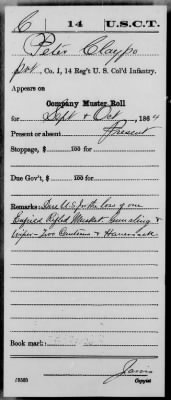 C | 14 | U.S.C.T.
Peter Claypo
Pvt., Co. I, 14 Reg't U. S. Col'd Infantry.
Appears on
Company Muster Roll
for Sept & Oct, 1864
Present or absent Present
Stoppage, $ 100 for
Due Gov't, $ 100 for
Remarks: Due U.S. for the loss of one
Enfield Rifled Musket. Gunsling &
wiper – two Canteens & Haversack
Book mark:
(858) Copyist